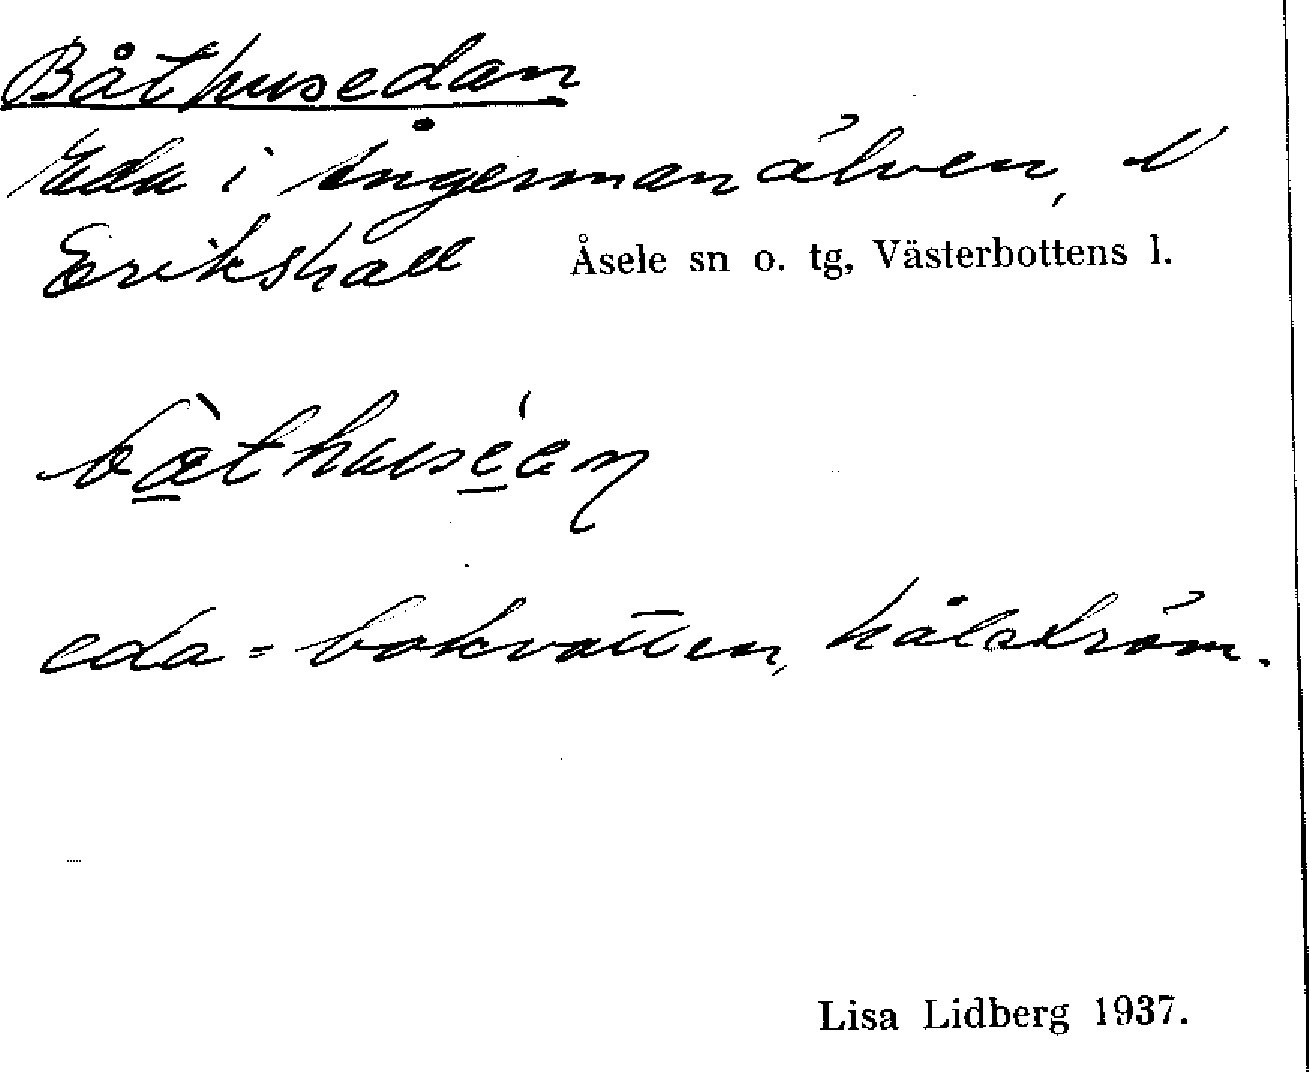 Båthusedan
Eda i Ångermanälven, v
Erikshall Åsele sn o. tg, Västerbottens l.
eda = bakvatten, hålström.
Lisa Lidberg 1937.